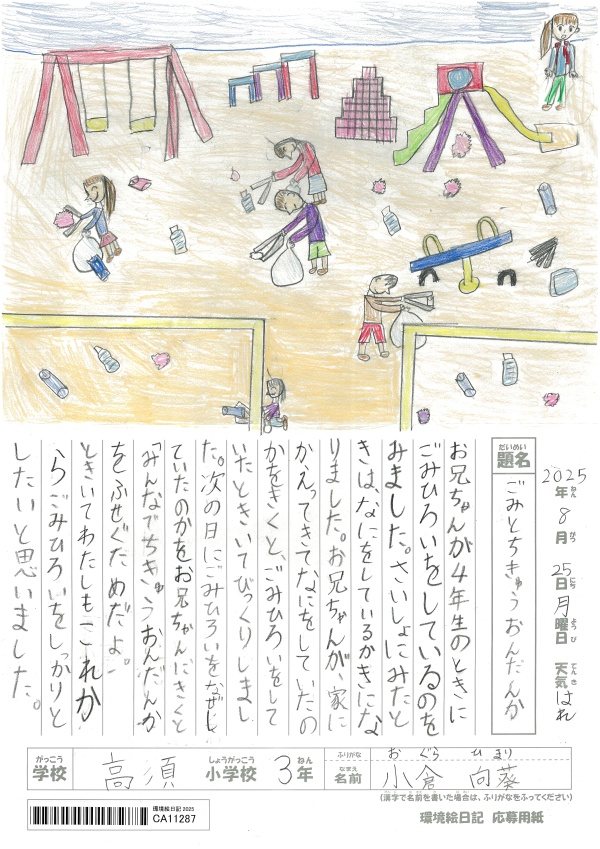 2025年8月25日月曜日 天気はれ
ねん
がつ
にち
ようび
てんき
だいめい
題名
ごみとちきゅうおんだんか
お兄ちゃんが4年生のときに
ごみひろいをしているのを
みました。さいしょにみたと
きは、なにをしているかきにな
りました。お兄ちゃんが、家に
かえってきて、なにをしていたの
かをきくと、ごみひろいをして
いたときいてびっくりしまし
た。次の日にごみひろいをなぜし
ていたのかをお兄ちゃんにきくと
「みんなでちきゅうおんだんか
をふせぐためだよ。」
ときいてわたしもこれか
らごみひろいをしっかりと
したいと思いました。
がっこう
学校
高須
しょうがっこう
小学校
3年
ねん
ふりがな
おぐら ひまり
なまえ
名前
小倉 向葵
(漢字で名前を書いた場合は、ふりがなをふってください)
環境絵日記 2025
CA11287
環境絵日記 応募用紙